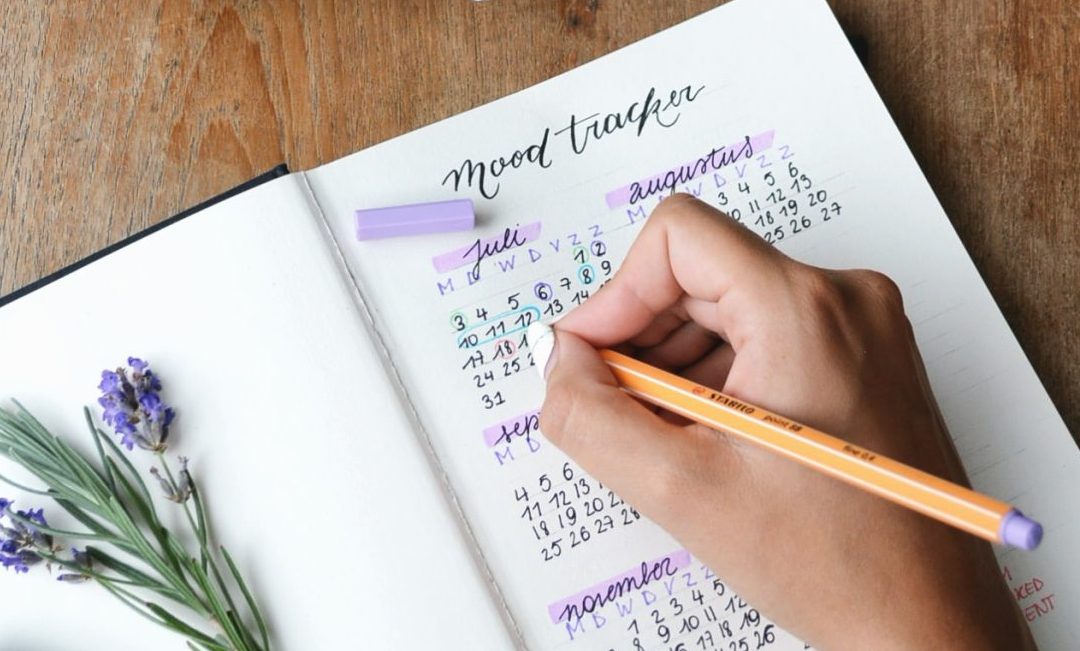 mood tracker
juli
M D W D V Z Z
1 2
3 4 5 6 7 8 9
10 11 12 13 14
17 18
24 25
31
augustus
M W D V Z Z
3 4 5 6
10 11 12 13
18 19 20
25 26 27
sep
M D
4 5 6
11 12 13
18 19 20
25 26 27 28
november
M D W D V Z
1 2 3 4 5
8 9 10 11 12
17 18 19
25 26
STABILO point 88 fine 0,4
ENT